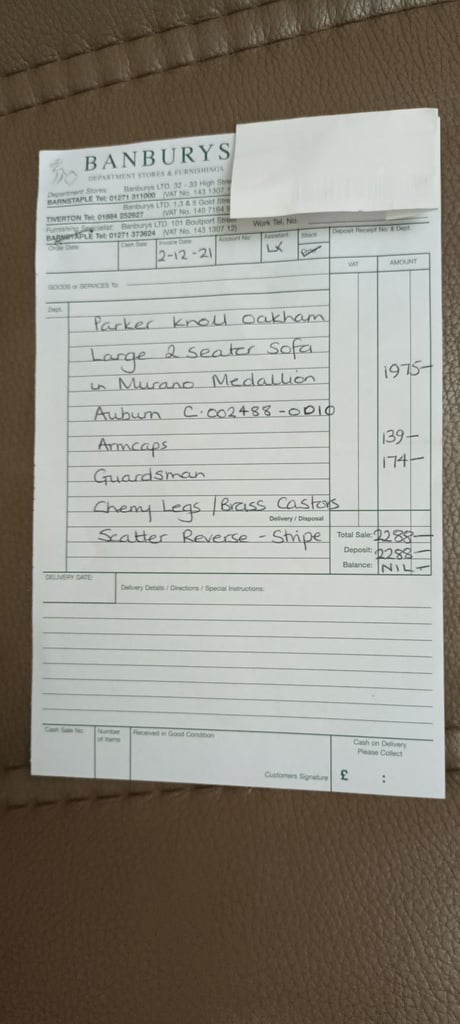 BANBURYS
DEPARTMENT STORES & FURNISHINGS
Department Stores: Banburys LTD, 32 - 33 High
BARNSTAPLE Tel: 01271 311000 (VAT No. 143 1307
Banburys LTD. 1,3 & 5 Gold
TIVERTON Tel: 01884 252627 (VAT No. 140 7164
Furnishing Specialist: Banburys LTD. 101 Boutport Street
BARNSTAPLE Tel: 01271 373624 (VAT No. 143 1307 12)
Work Tel. No.
Order Date: Cash Sale Invoice Date: Account No: Assistant Stock Deposit Receipt No. & Dept.
2-12-21 LX
VAT AMOUNT
GOODS or SERVICES To:
Dept.
Parker Knoll Oakham
Large 2 Seater Sofa
in Murano Medallion 1975-
Auburn C.002488-0010
Armcaps 139-
Guardsman 174-
Cherry Legs / Brass Castors
Delivery / Disposal
Scatter Reverse - Stripe
Total Sale: 2288-
Deposit: 2288-
Balance: NIL-
DELIVERY DATE: Delivery Details / Directions / Special Instructions:
Cash Sale No. Number of Items Received in Good Condition
Cash on Delivery
Please Collect
Customers Signature £ :